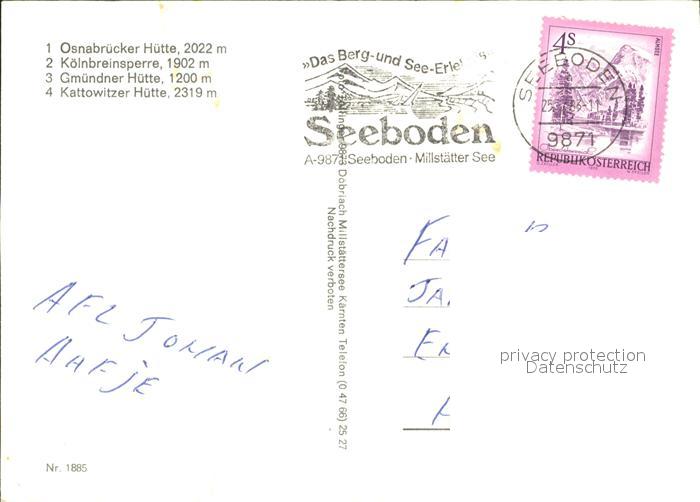 1 Osnabrücker Hütte, 2022 m
2 Kölnbreinsperre, 1902 m
3 Gmündner Hütte, 1200 m
4 Kattowitzer Hütte, 2319 m
»Das Berg- und See-Erle
Seeboden
A-9871 Seeboden · Millstätter See
SEEBODEN
9871
4s
ALMSEE
REPUBLIK ÖSTERREICH
9873 Döbriach Millstättersee Kärnten Telefon (0 47 66) 25 27
Nachdruck verboten
FA
JA.
privacy protection
Datenschutz
AFZ JOHAN
Nr. 1885